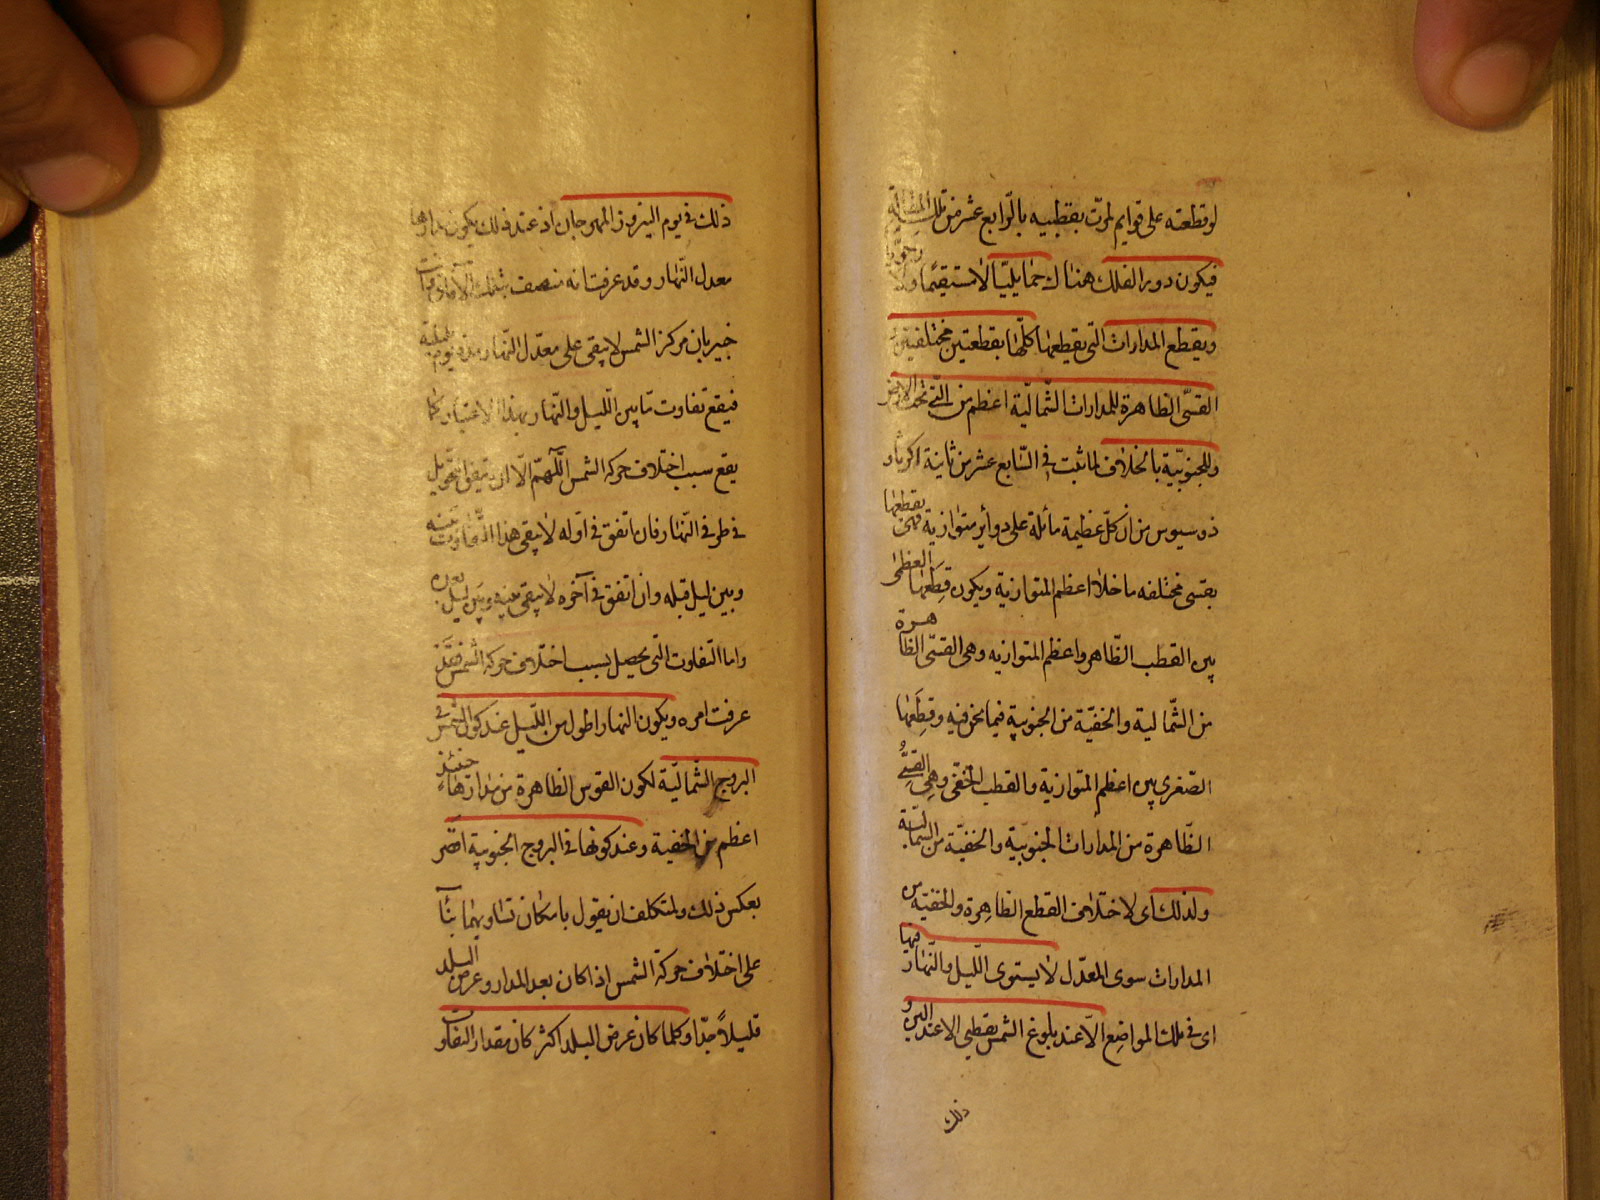 لو قطعته على قوايم لمرّت بقطبيه بالرّابع عشر من تلك المقالة
فيكون دور الفلك هناك حمايليّا لا مستقيمًا ولا رحويّا
ويقطع المدارات الّتى يقطعها كلّها بقطعتين مختلفتين
القسىّ الظاهرة للمدارات الشّماليّة اعظم من الّتى تحت الارض
وللجنوبيّة بالخلاف لما ثبت فى السّابع عشر من ثانية اكر ثاو
ذوسيوس من ان كلّ عظيمة مائلة على دوائر متوازية فهى يقطعها
بقسى مختلفه ما خلا اعظم المتوازية ويكون قِطَعها العظمى
بين القطب الظّاهر واعظم المتوازيه وهى القسىّ الظاهرة
من الشّمالية والخفيّة من الجنوبية فيما نحن فيه وقِطَعها
الصّغرى بين اعظم المتوازية والقطب الخفى وهى القسىّ
الظّاهرة من المدارات الجنوبيّة والخفيّة من الشماليّة
ولذلك اى لاختلاف القطع الظاهرة والخفيّه من
المدارات سوى المعدّل لا يستوى اللّيل والنّهار فيها
اى فى تلك المواضع الّا عند بلوغ الشمس نقطتى الاعتدالين و
ذلك
ذلك فى يوم النيروز المهرجان اذ عند ذلك يكون مدارها
معدل النّهار وقد عرفت انه منصف بتلك الآفاق وانت
خبير بان مركز الشمس لا يبقى على معدّل النّهار مدة يوم بليلته
فيقع تفاوت ما بين اللّيل والنّهار بهذا الاعتبار كما
يقع سبب اختلاف حركة الشمس اللّهمّ الّا ان يتفق التحويل
فى طرفى النّهار فان اتفق فى اوله لا يبقى هذا التّفاوت بينه
وبين ليل قبله وان اتفق فى آخره لا يبقى بينه وبين ليل بعده
واما التّفاوت الّتى يحصل بسبب اختلاف حركة الشمس فقد
عرفت امره ويكون النهار اطول من اللّيل عند كون الشمس فى
البروج الشّماليّة لكون القوس الظاهرة من مداراتها حينئذ
اعظم من الخفية وعند كونها فى البروج الجنوبية اقصر
بعكس ذلك ولمتكلف ان يقول بامكان تساويهما بناً
على اختلاف حركة الشمس اذا كان بعد المدار وعرض البلد
قليلاً جدّا وكلما كان عرض البلد اكثر كان مقدار التفاوت